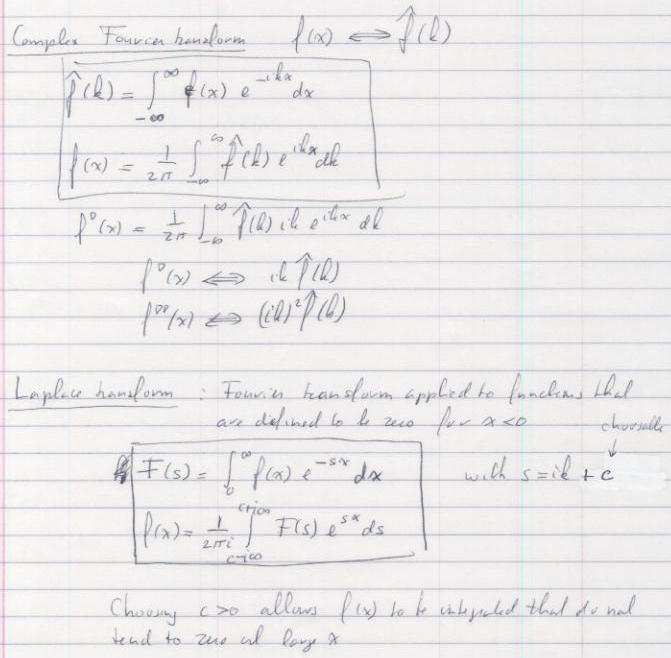 Complex Fourier transform f(x) ⟺ f̂(k)
f̂(k) = ∫_{-∞}^{∞} f(x) e^{-ikx} dx
f(x) = 1/2π ∫_{-∞}^{∞} f̂(k) e^{ikx} dk
f'(x) = 1/2π ∫_{-∞}^{∞} f̂(k) ik e^{ikx} dk
f'(x) ⟺ ik f̂(k)
f''(x) ⟺ (ik)² f̂(k)
Laplace transform : Fourier transform applied to functions that
are defined to be zero for x<0
choosable
↓
F(s) = ∫_0^∞ f(x) e^{-sx} dx with s=ik + c
f(x) = 1/2πi ∫_{c-i∞}^{c+i∞} F(s) e^{sx} ds
Choosing c>0 allows f(x) to be integrated that do not
tend to zero at large x